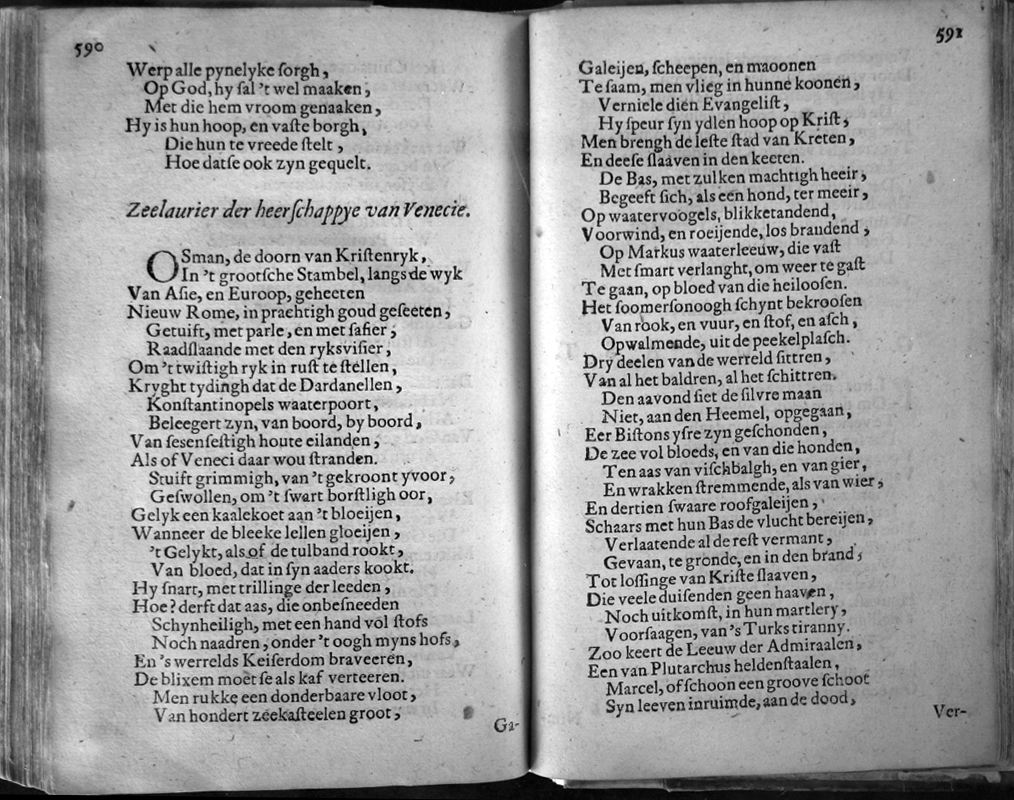 590
Werp alle pynelyke ſorgh,
Op God, hy ſal 't wel maaken,
Met die hem vroom genaaken,
Hy is hun hoop, en vaſte borgh,
Die hun te vreede ſtelt,
Hoe datſe ook zyn gequelt.
Zeelaurier der heerſchappye van Venecie.
OSman, de doorn van Kriſtenryk,
In 't grootſche Stambel, langs de wyk
Van Aſie, en Euroop, geheeten
Nieuw Rome, in prachtigh goud geſeeten,
Getuift, met parle, en met ſafier,
Raadſlaande met den ryksviſier,
Om 't twiſtigh ryk in ruſt te ſtellen,
Kryght tydingh dat de Dardanellen,
Konſtantinopels waaterpoort,
Beleegert zyn, van boord, by boord,
Van ſesenſeſtigh houte eilanden,
Als of Veneci daar wou ſtranden.
Stuift grimmigh, van 't gekroont yvoor,
Geſwollen, om 't ſwart borſtligh oor,
Gelyk een kaalekoet aan 't bloeijen,
Wanneer de bleeke lellen gloeijen,
't Gelykt, als of de tulband rookt,
Van bloed, dat in ſyn aaders kookt.
Hy ſnart, met trillinge der leeden,
Hoe? derft dat aas, die onbeſneeden
Schynheiligh, met een hand vol ſtofs
Noch naadren, onder 't oogh myns hofs,
En 's werrelds Keiſerdom braveeren,
De blixem moet ſe als kaf verteeren.
Men rukke een donderbaare vloot,
Van hondert zeekaſteelen groot,
Ga-
591
Galeijen, ſcheepen, en maoonen
Te ſaam, men vlieg in hunne koonen,
Verniele dien Evangeliſt,
Hy ſpeur ſyn ydlen hoop op Kriſt,
Men brengh de leſte ſtad van Kreten,
En deeſe ſlaaven in den keeten.
De Bas, met zulken machtigh heeir,
Begeeft ſich, als een hond, ter meeir,
Op waatervoogels, blikketandend,
Voorwind, en roeijende, los brandend,
Op Markus waaterleeuw, die vaſt
Met ſmart verlanght, om weer te gaſt
Te gaan, op bloed van die heilooſen.
Het ſoomerſonoogh ſchynt bekrooſen
Van rook, en vuur, en ſtof, en aſch,
Opwalmende, uit de peekelplaſch.
Dry deelen van de werreld ſittren,
Van al het baldren, al het ſchittren.
Den aavond ſiet de ſilvre maan
Niet, aan den Heemel, opgegaan,
Eer Biſtons yſre zyn geſchonden,
De zee vol bloeds, en van die honden,
Ten aas van viſchbalgh, en van gier,
En wrakken ſtremmende, als van wier,
En dertien ſwaare roofgaleijen,
Schaars met hun Bas de vlucht bereijen,
Verlaatende al de reſt vermant,
Gevaan, te gronde, en in den brand,
Tot loſſinge van Kriſte ſlaaven,
Die veele duiſenden geen haaven,
Noch uitkomſt, in hun martlery,
Voorſaagen, van 's Turks tiranny.
Zoo keert de Leeuw der Admiraalen,
Een van Plutarchus heldenſtaalen,
Marcel, ofſchoon een groove ſchoot
Syn leeven inruimde, aan de dood,
Ver-